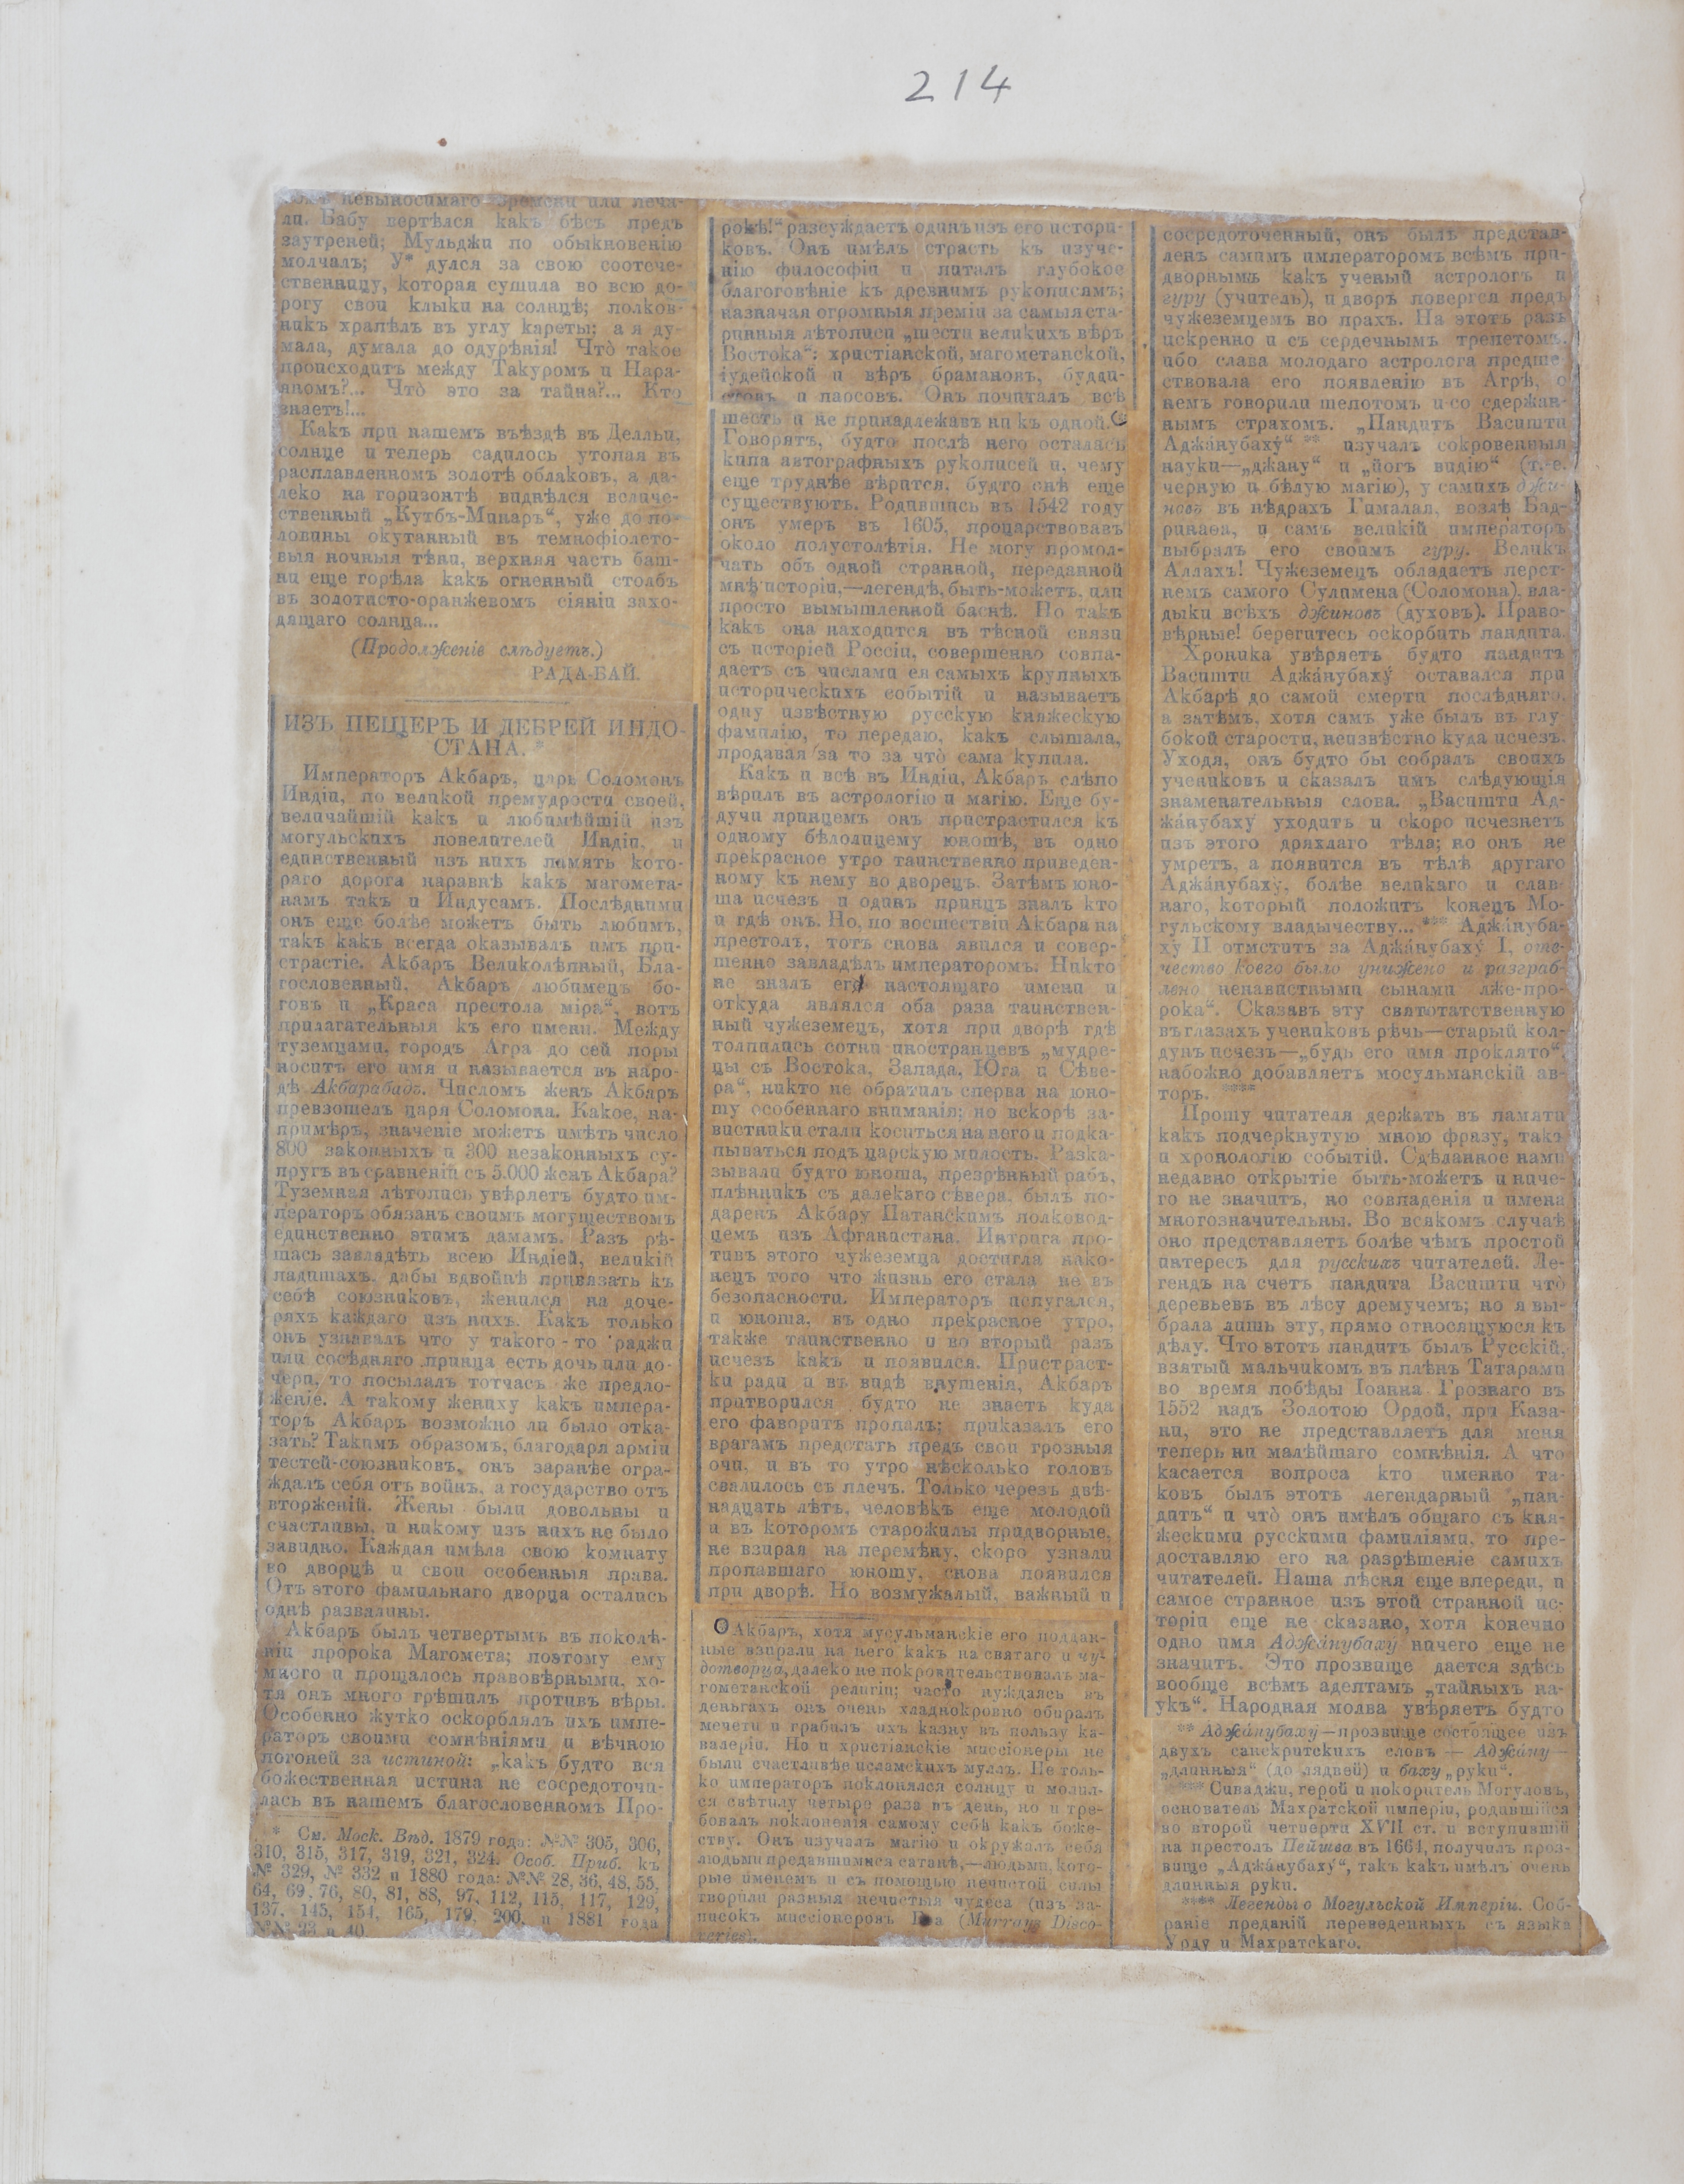 214
невыносимаго времени или печа-
ли. Бабу вертѣлся какъ бѣсъ предъ
заутреней; Мульджи по обыкновенію
молчалъ; У* дулся за свою соотече-
ственницу, которая сушила во всю до-
рогу свои клыки на солнцѣ; полков-
никъ храпѣлъ въ углу кареты; а я ду-
мала, думала до одурѣнія! Что̀ такое
происходитъ между Такуромъ и Нара-
яномъ?... Что̀ это за тайна?... Кто
знаетъ!...
Какъ при нашемъ въѣздѣ въ Дельи,
солнце и теперь садилось утопая въ
расплавленномъ золотѣ облаковъ, а да-
леко на горизонтѣ виднѣлся величе-
ственный „Кутбъ-Минаръ“, уже до по-
ловины окутанный въ темнофіолето-
выя ночныя тѣни, верхняя часть баш-
ни еще горѣла какъ огненный столбъ
въ золотисто-оранжевомъ сіяніи захо-
дящаго солнца...
(Продолженіе слѣдуетъ.)
РАДА-БАЙ.
ИЗЪ ПЕЩЕРЪ И ДЕБРЕЙ ИНДО-
СТАНА. *
Императоръ Акбаръ, царь Соломонъ
Индіи, по великой премудрости своей,
величайшій какъ и любимѣйшій изъ
могульскихъ повелителей Индіи, и
единственный изъ нихъ память кото-
раго дорога наравнѣ какъ магомета-
намъ такъ и Индусамъ. Послѣдними
онъ еще болѣе можетъ быть любимъ,
такъ какъ всегда оказывалъ имъ при-
страстіе. Акбаръ Великолѣпный, Бла-
гословенный, Акбаръ любимецъ бо-
говъ и „Краса престола міра“, вотъ
прилагательныя къ его имени. Между
туземцами, городъ Агра до сей поры
носитъ его имя и называется въ наро-
дѣ Акбарабадъ. Числомъ женъ Акбаръ
превзошелъ царя Соломона. Какое, на-
примѣръ, значеніе можетъ имѣть число
800 законныхъ и 300 незаконныхъ су-
пругъ въ сравненіи съ 5.000 женъ Акбара?
Туземная лѣтопись увѣряетъ будто им-
ператоръ обязанъ своимъ могуществомъ
единственно этимъ дамамъ. Разъ рѣ-
шась завладѣть всею Индіей, великій
падишахъ, дабы вдвойнѣ привязать къ
себѣ союзниковъ, женился на доче-
ряхъ каждаго изъ нихъ. Какъ только
онъ узнавалъ что у такого-то раджи
или сосѣдняго принца есть дочь или до-
чери, то посылалъ тотчасъ же предло-
женіе. А такому жениху какъ импера-
торъ Акбаръ возможно ли было отка-
зать? Такимъ образомъ, благодаря арміи
тестей-союзниковъ, онъ заранѣе огра-
ждалъ себя отъ войнъ, а государство отъ
вторженій. Жены были довольны и
счастливы, и никому изъ нихъ не было
завидно. Каждая имѣла свою комнату
во дворцѣ и свои особенныя права.
Отъ этого фамильнаго дворца остались
однѣ развалины.
Акбаръ былъ четвертымъ въ поколѣ-
ніи пророка Магомета; поэтому ему
много и прощалось правовѣрными, хо-
тя онъ много грѣшилъ противъ вѣры.
Особенно жутко оскорблялъ ихъ импе-
раторъ своими сомнѣніями и вѣчною
погоней за истиной: „какъ будто вся
божественная истина не сосредоточи-
лась въ нашемъ благословенномъ Про-
* См. Моск. Вѣд. 1879 года: №№ 305, 306,
310, 315, 317, 319, 321, 324. Особ. Приб. къ
№ 329, № 332 и 1880 года: №№ 28, 36, 48, 55,
64, 69, 76, 80, 81, 88, 97, 112, 115, 117, 129,
137, 145, 154, 165, 179, 200, и 1881 года
№№ 23 и 40.
рокѣ!“ разсуждаетъ одинъ изъ его истори-
ковъ. Онъ имѣлъ страсть къ изуче-
нію философіи и питалъ глубокое
благоговѣніе къ древнимъ рукописямъ;
назначая огромныя преміи за самыя ста-
ринныя лѣтописи „шести великихъ вѣръ
Востока“: христіанской, магометанской,
іудейской и вѣръ брамановъ, будди-
стовъ и парсовъ. Онъ почиталъ всѣ
шесть и не принадлежавъ ни къ одной.
Говорятъ, будто послѣ него осталась
кипа автографныхъ рукописей и, чему
еще труднѣе вѣрится, будто онѣ еще
существуютъ. Родившись въ 1542 году
онъ умеръ въ 1605, процарствовавъ
около полустолѣтія. Не могу промол-
чать объ одной странной, переданной
мнѣ исторіи,—легендѣ, быть-можетъ, или
просто вымышленной баснѣ. Но такъ
какъ она находится въ тѣсной связи
съ исторіей Россіи, совершенно совпа-
даетъ съ числами ея самыхъ крупныхъ
историческихъ событій и называетъ
одну извѣстную русскую княжескую
фамилію, то передаю, какъ слышала,
продавая за то за что̀ сама купила.
Какъ и всѣ въ Индіи, Акбаръ слѣпо
вѣрилъ въ астрологію и магію. Еще бу-
дучи принцемъ онъ пристрастился къ
одному бѣлолицему юношѣ, въ одно
прекрасное утро таинственно приведен-
ному къ нему во дворецъ. Затѣмъ юно-
ша исчезъ и одинъ принцъ зналъ кто
и гдѣ онъ. Но, по восшествіи Акбара на
престолъ, тотъ снова явился и совер-
шенно завладѣлъ императоромъ. Никто
не зналъ его настоящаго имени и
откуда являлся оба раза таинствен-
ный чужеземецъ, хотя при дворѣ гдѣ
толпились сотни иностранцевъ „мудре-
цы съ Востока, Запада, Юга и Сѣве-
ра“, никто не обратилъ сперва на юно-
шу особеннаго вниманія; но вскорѣ за-
вистники стали коситься на него и подка-
пываться подъ царскую милость. Разка-
зывали будто юноша, презрѣнный рабъ,
плѣнникъ съ далекаго сѣвера, былъ по-
даренъ Акбару Патанскимъ полковод-
цемъ изъ Афганистана. Интрига про-
тивъ этого чужеземца достигла нако-
нецъ того что жизнь его стала не въ
безопасности. Императоръ испугался,
и юноша, въ одно прекрасное утро,
также таинственно и во второй разъ
исчезъ какъ и появился. Пристраст-
ки ради и въ видѣ внушенія, Акбаръ
притворился будто не знаетъ куда
его фаворитъ пропалъ; приказалъ его
врагамъ предстать предъ свои грозныя
очи, и въ то утро нѣсколько головъ
свалилось съ плечъ. Только черезъ двѣ-
надцать лѣтъ, человѣкъ еще молодой
и въ которомъ старожилы придворные,
не взирая на перемѣну, скоро узнали
пропавшаго юношу, снова появился
при дворѣ. Но возмужалый, важный и
Акбаръ, хотя мусульманскіе его поддан-
ные взирали на него какъ на святаго и чу-
дотворца, далеко не покровительствовалъ ма-
гометанской религіи; часто нуждаясь въ
деньгахъ онъ очень хладнокровно обиралъ
мечети и грабилъ ихъ казну въ пользу ка-
валеріи. Но и христіанскіе миссіонеры не
были счастливѣе исламскихъ муллъ. Не толь-
ко императоръ поклонялся солнцу и молил-
ся свѣтилу четыре раза въ день, но и тре-
бовалъ поклоненія самому себѣ какъ боже-
ству. Онъ изучалъ магію и окружалъ себя
людьми предавшимися сатанѣ,—людьми, кото-
рые именемъ и съ помощью нечистой силы
творили разныя нечистыя чудеса (изъ за-
писокъ миссіонеровъ (Murrays Disco-
veries).
сосредоточенный, онъ былъ представ-
ленъ самимъ императоромъ всѣмъ при-
дворнымъ какъ ученый астрологъ и
гуру (учитель), и дворъ повергся предъ
чужеземцемъ во прахъ. На этотъ разъ
искренно и съ сердечнымъ трепетомъ,
ибо слава молодаго астролога предше-
ствовала его появленію въ Агрѣ, о
немъ говорили шепотомъ и со сдержан-
нымъ страхомъ. „Пандитъ Васишти
Аджа́нубаху́“ ** изучалъ сокровенныя
науки—„джану“ и „йогъ видію“ (т.-е.
черную и бѣлую магію), у самихъ джи-
новъ въ нѣдрахъ Гималая, возлѣ Бад-
ринаѳа, и самъ великій императоръ
выбралъ его своимъ гуру. Великъ
Аллахъ! Чужеземецъ обладаетъ перст-
немъ самого Сулимена (Соломона), вла-
дыки всѣхъ джиновъ (духовъ). Право-
вѣрные! берегитесь оскорбить пандита.
Хроника увѣряетъ будто пандитъ
Васишти Аджа́нубаху́ оставался при
Акбарѣ до самой смерти послѣдняго,
а затѣмъ, хотя самъ уже былъ въ глу-
бокой старости, неизвѣстно куда исчезъ.
Уходя, онъ будто бы собралъ своихъ
учениковъ и сказалъ имъ слѣдующія
знаменательныя слова. „Васишти Ад-
жа́нубаху́ уходитъ и скоро исчезнетъ
изъ этого дряхлаго тѣла; но онъ не
умретъ, а появится въ тѣлѣ другаго
Аджа́нубаху́, болѣе великаго и слав-
наго, который положитъ конецъ Мо-
гульскому владычеству... *** Аджа́нуба-
ху́ II отмститъ за Аджа́нубаху́ I, оте-
чество коего было унижено и разграб-
лено ненавистными сынами лже-про-
рока“. Сказавъ эту святотатственную
въ глазахъ учениковъ рѣчь—старый кол-
дунъ исчезъ—„будь его имя проклято“,
набожно добавляетъ мусульманскій ав-
торъ. ****
Прошу читателя держать въ памяти
какъ подчеркнутую мною фразу, такъ
и хронологію событій. Сдѣланное нами
недавно открытіе быть-можетъ и ниче-
го не значитъ, но совпаденія и имена
многозначительны. Во всякомъ случаѣ
оно представляетъ болѣе чѣмъ простой
интересъ для русскихъ читателей. Ле-
гендъ на счетъ пандита Васишти что̀
деревьевъ въ лѣсу дремучемъ; но я вы-
брала лишь эту, прямо относящуюся къ
дѣлу. Что этотъ пандитъ былъ Русскій,
взятый мальчикомъ въ плѣнъ Татарами
во время побѣды Іоанна Грознаго въ
1552 надъ Золотою Ордой, при Каза-
ни, это не представляетъ для меня
теперь ни малѣйшаго сомнѣнія. А что
касается вопроса кто именно та-
ковъ былъ этотъ легендарный „пан-
дитъ“ и что̀ онъ имѣлъ общаго съ кня-
жескими русскими фамиліями, то пре-
доставляю его на разрѣшеніе самихъ
читателей. Наша пѣсня еще впереди, и
самое странное изъ этой странной ис-
торіи еще не сказано, хотя конечно
одно имя Аджа́нубаху́ ничего еще не
значитъ. Это прозвище дается здѣсь
вообще всѣмъ адептамъ „тайныхъ на-
укъ“. Народная молва увѣряетъ будто
** Аджа́нубаху́—прозвище состоящее изъ
двухъ санскритскихъ словъ — Аджа́ну —
„длинныя“ (до лядвей) и баху „руки“.
*** Сиваджи, герой и покоритель Могуловъ,
основатель Махратской имперіи, родившійся
во второй четверти XVII ст. и вступившій
на престолъ Пейшва въ 1664, получилъ проз-
вище „Аджа́нубаху́“, такъ какъ имѣлъ очень
длинныя руки.
**** Легенды о Могульской Имперіи. Соб-
раніе преданій переведенныхъ съ языка
Урду и Махратскаго.